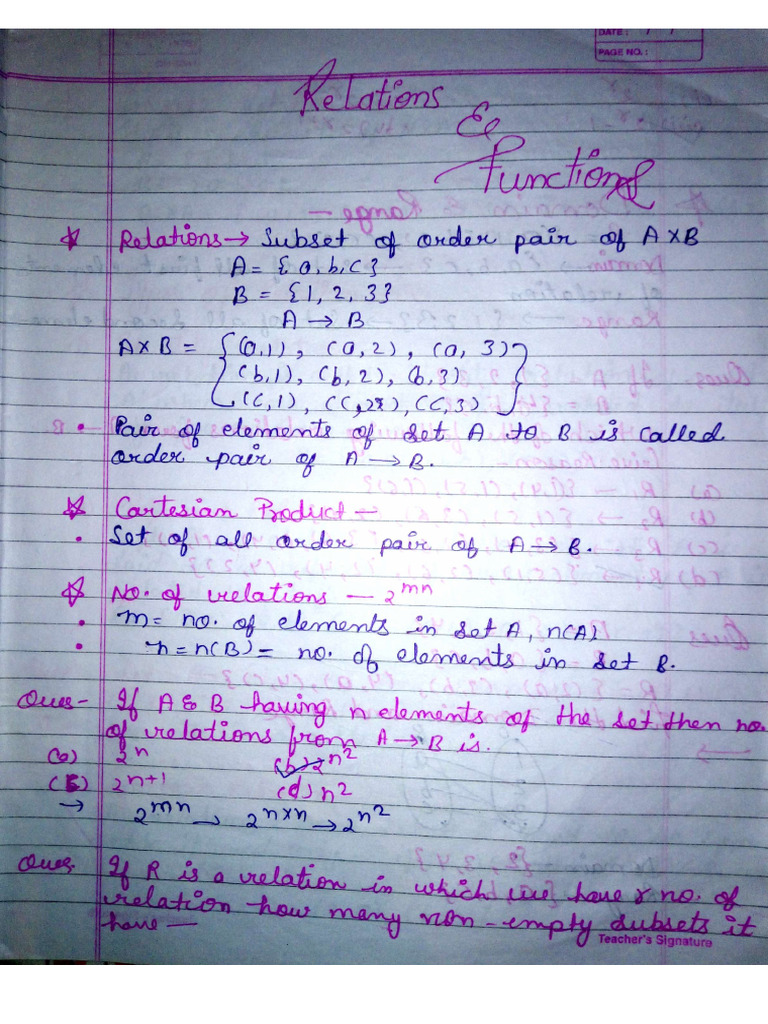 DATE : / /
PAGE NO. :
Relations
&
Functions
Relations → Subset of order pair of A×B
A = {a, b, c}
B = {1, 2, 3}
A → B
A×B = {(a,1), (a,2), (a,3)
(b,1), (b,2), (b,3)
(c,1), (c,2), (c,3)}
• Pair of elements of set A to B is called
order pair of A → B.
Cartesian Product –
• Set of all order pair of A → B.
No. of relations – 2^mn
• m = no. of elements in set A, n(A)
• n = n(B) = no. of elements in set B.
Ques - If A & B having n elements of the set then no.
of relations from A → B is.
(a) 2^n (b) 2^n²
(c) 2^n+1 (d) n²
→ 2^mn → 2^n×n → 2^n²
Ques. If R is a relation in which we have r no. of
relation how many non-empty subsets it
have –
Teacher's Signature